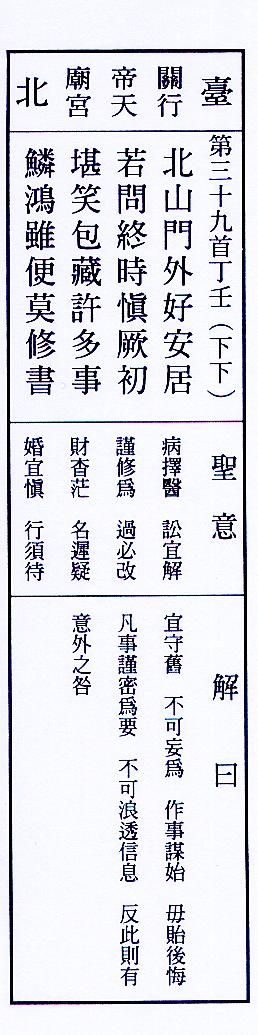 臺北
關行天宮
帝廟
第三十九首丁壬（下下）
北山門外好安居
若問終時慎厥初
堪笑包藏許多事
鱗鴻雖便莫修書
聖意
病擇醫　訟宜解
謹修為　過必改
財杳茫　名遲疑
婚宜慎　行須待
解曰
宜守舊　不可妄為　作事謀始　毋貽後悔
凡事謹密為要　不可浪透信息　反此則有
意外之咎